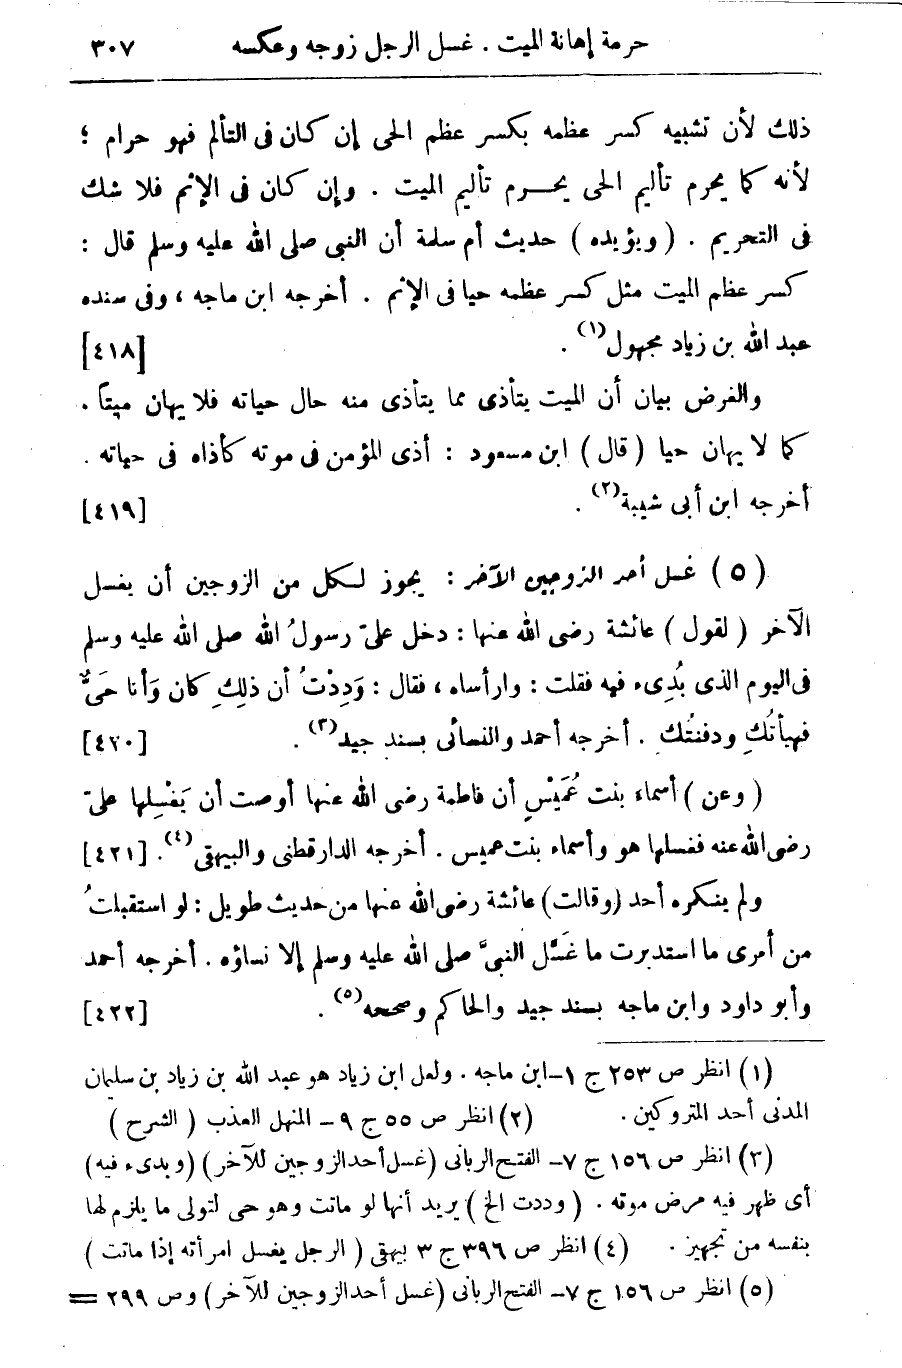 حرمة إهانة الميت . غسل الرجل زوجه وعكسه ٣٠٧
ذلك لأن تشبيه كسر عظمه بكسر عظم الحى إن كان فى التألم فهو حرام ؛
لأنه كما يحرم تأليم الحى يحـرم تأليم الميت . وإن كان فى الإثم فلا شك
فى التحريم . ( ويؤيده ) حديث أم سلمة أن النبى صلى الله عليه وسلم قال :
كسر عظم الميت مثل كسر عظمه حيا فى الإثم . أخرجه ابن ماجه ، وفى سنده
عبد الله بن زياد مجهول(١) . [٤١٨]
والغرض بيان أن الميت يتأذى مما يتأذى منه حال حياته فلا يهان ميتاً .
كما لا يهان حيا ( قال ) ابن مسعود : أذى المؤمن فى موته كأذاه فى حياته .
أخرجه ابن أبى شيبة(٢) . [٤١٩]
( ٥ ) غسل أحد الزوجين الآخر : يجوز لكل من الزوجين أن يغسل
الآخر ( لقول ) عائشة رضى الله عنها : دخل علىّ رسولُ الله صلى الله عليه وسلم
فى اليوم الذى بُدِىء فيه فقلت : وارأساه ، فقال : وَدِدْتُ أن ذلكِ كان وَأنا حَىٌّ
فهيأتُكِ ودفنتُك . أخرجه أحمد والنسائى بسند جيد(٣) . [٤٢٠]
( وعن ) أسماء بنت عُمَيْسٍ أن فاطمة رضى الله عنها أوصت أن يَغْسِلها علىّ
رضى الله عنه فغسلها هو وأسماء بنت عميس . أخرجه الدارقطنى والبيهقى(٤) . [٤٢١]
ولم ينكره أحد (وقالت) عائشة رضى الله عنها من حديث طويل : لو استقبلتُ
من أمرى ما استدبرت ما غَسَّل النبىَّ صلى الله عليه وسلم إلا نساؤه . أخرجه أحمد
وأبو داود وابن ماجه بسند جيد والحاكم وصححه(٥) . [٤٢٢]
(١) انظر ص ٢٥٣ ج ١ – ابن ماجه . ولعل ابن زياد هو عبد الله بن زياد بن سليمان
المدنى أحد المتروكين . (٢) انظر ص ٥٥ ج ٩ – المنهل العذب ( الشرح )
(٣) انظر ص ١٥٦ ج ٧ – الفتح الربانى (غسل أحد الزوجين للآخر) (وبدىء فيه)
أى ظهر فيه مرض موته . ( وددت الخ ) يريد أنها لو ماتت وهو حى لتولى ما يلزم لها
بنفسه من تجهيز . (٤) انظر ص ٣٩٦ ج ٣ بيهقى ( الرجل يغسل امرأته إذا ماتت )
(٥) انظر ص ١٥٦ ج ٧ – الفتح الربانى (غسل أحد الزوجين للآخر) وص ٢٩٩ =